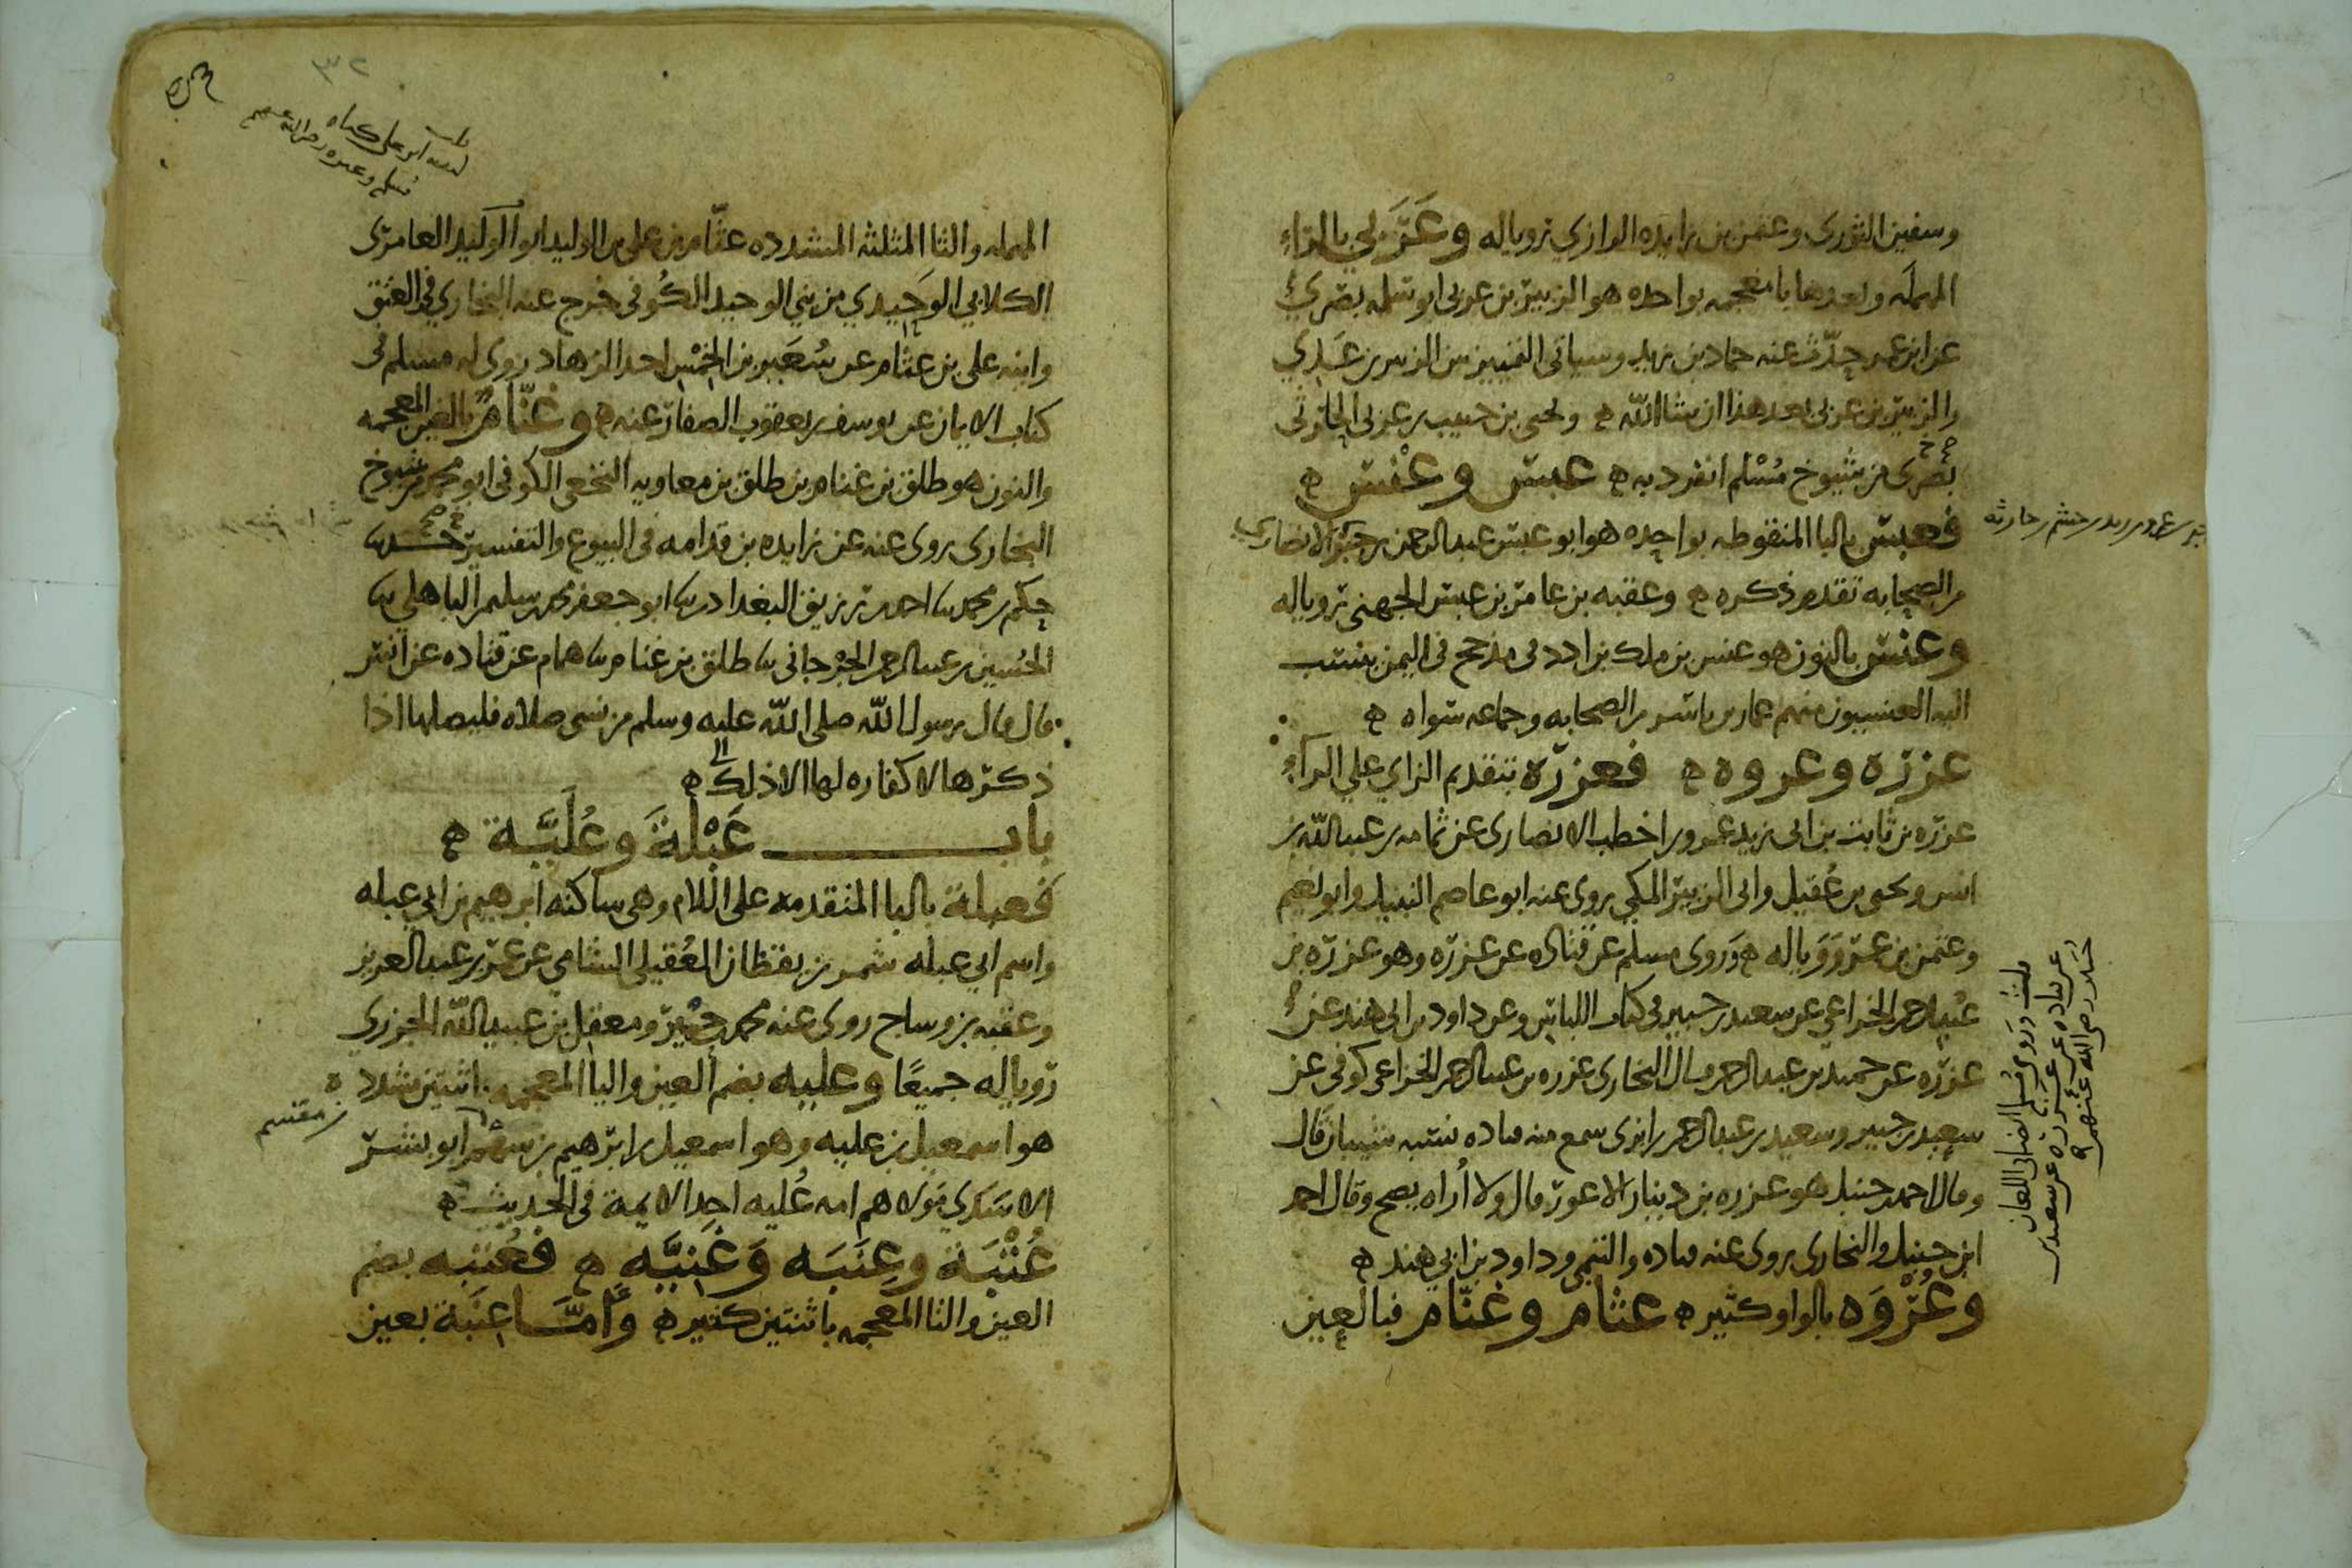 وسفين الثورى وعثمن بن زايده الرازي رويا له وعَرَبي بالراءِ
المهمله وبعدها با معجمه بواحده هو الزبير بن عربى ابو سلمه بصري
عن ابن عمر حدّث عنه حماد بن زيد وسياتى التمييز بين الزبير بن عَدِي
والزبير بن عربى بعد هذا ان شا الله ه ويحيى بن حبيب بن عربى الحارثى
بصرى من شيوخ مُسْلم انفرد به ه عبس وعنْس ه
فعبس بالبا المنقوطه بواحده هو ابو عبس عبد الرحمن بن جبر الانصاري
من الصحابه تقدم ذكره ه وعقبه بن عامر بن عبس الجهنى رويا له
وعنس بالنون هو عنس بن ملك بن ادد فى مذحج فى اليمن ينسب
اليه العنسيون منهم عمار بن ياسر من الصحابه وجماعه سواه ه
عزره وعروه ه فعزرة بتقديم الزاي علي الراءِ
عزره بن ثابت بن ابى زيد عمرو بن اخطب الانصارى عن ثمامه بن عبد الله بن
انس ويحيى بن عُقيل وابى الزبير المكي روى عنه ابو عاصم النبيل وابو نعيم
وعثمن بن عمر رَوَيا له ه وَروى مسلم عن قتاده عن عزره وهو عزره بن
عبد الرحمن الخزاعي عن سعيد بن جبير فى كتاب اللباس وعن داود بن ابى هند عن
عزره عن حميد بن عبد الرحمن قال البخارى عزره بن عبد الرحمن الخزاعى كوفى عن
سعيد بن جبير وسعيد بن عبد الرحمن بن ابزى سمع منه قتاده نسبه شيبان قال
وقال احمد بن حنبل هو عزره بن دينار الاعور قال ولا أُراه يصح وقال احمد
ابن حنبل والبخارى روى عنه قتاده والتيمى وداود بن ابي هند ه
وعُرْوَه بالواو كثير ه عثام وغنّام فبالعين
جبر بن عمرو بن زيد بن جشم بن حارثه
قلت وروى مسلم ايضا فى اللعان
عن قتاده عن عزره عن سعيد بن
رضى الله عنهم
المهمله والثا المثلثه المشدده عثّام بن على بن الوليد ابو الوليد العامرى
الكلابي الوَحِيدي من بني الوحيد الكُوفى خرج عنه البخاري في العتق
وابنه على بن عثام عن سُعَير بن الخِمْس احد الزهاد روى له مسلم فى
كتاب الايمان عن يوسف بن يعقوب الصفار عنه ه وغنّام بالغين المعجمه
والنون هو طلق بن غنام بن طلق بن معاويه النخعى الكوفى ابو محمد من شيوخ
البخارى روى عنه عن زايده بن قدامه فى البيوع والتفسير حدثنا
حكم بن محمد نا احمد بن رزيق البغدادى نا ابو جعفر محمد بن سليم الباهلي نا
الحُسين بن عبد الرحمن الجرْجانى نا طلق بن غنام نا همام عن قتاده عن انس
قال قال رسول الله صلى الله عليه وسلم من نسى صلاه فليصلها اذا
ذكرها لا كفاره لها الا ذلك ه
باب عَبْلةَ وعُليَّة ه
فعبلة بالبا المتقدمه على اللام وهى ساكنه ابرهيم بن ابي عبله
واسم ابي عبله شمر بن يقظان العُقيلى الشامي عن عمر بن عبد العزيز
وعقبه بن وساج روى عنه محمد بن حِمْير ومعقل بن عبيد الله الجزري
رويا له جميعًا وعليه بضم العين واليا المعجمه باثنتين مشدده
هو اسمعيل بن عليه وهو اسمعيل بن ابرهيم بن سهم ابو بشر
الاسَدي مولاهم امه عُليه احد الايمة في الحديث ه
بن مقسم
عُتْبَة وعِنَبَه وَغَنِيَّه ه فعُتبه بضم
العين والتا المعجمه باثنتين كثير ه وَامَّا عِنَبة بعين